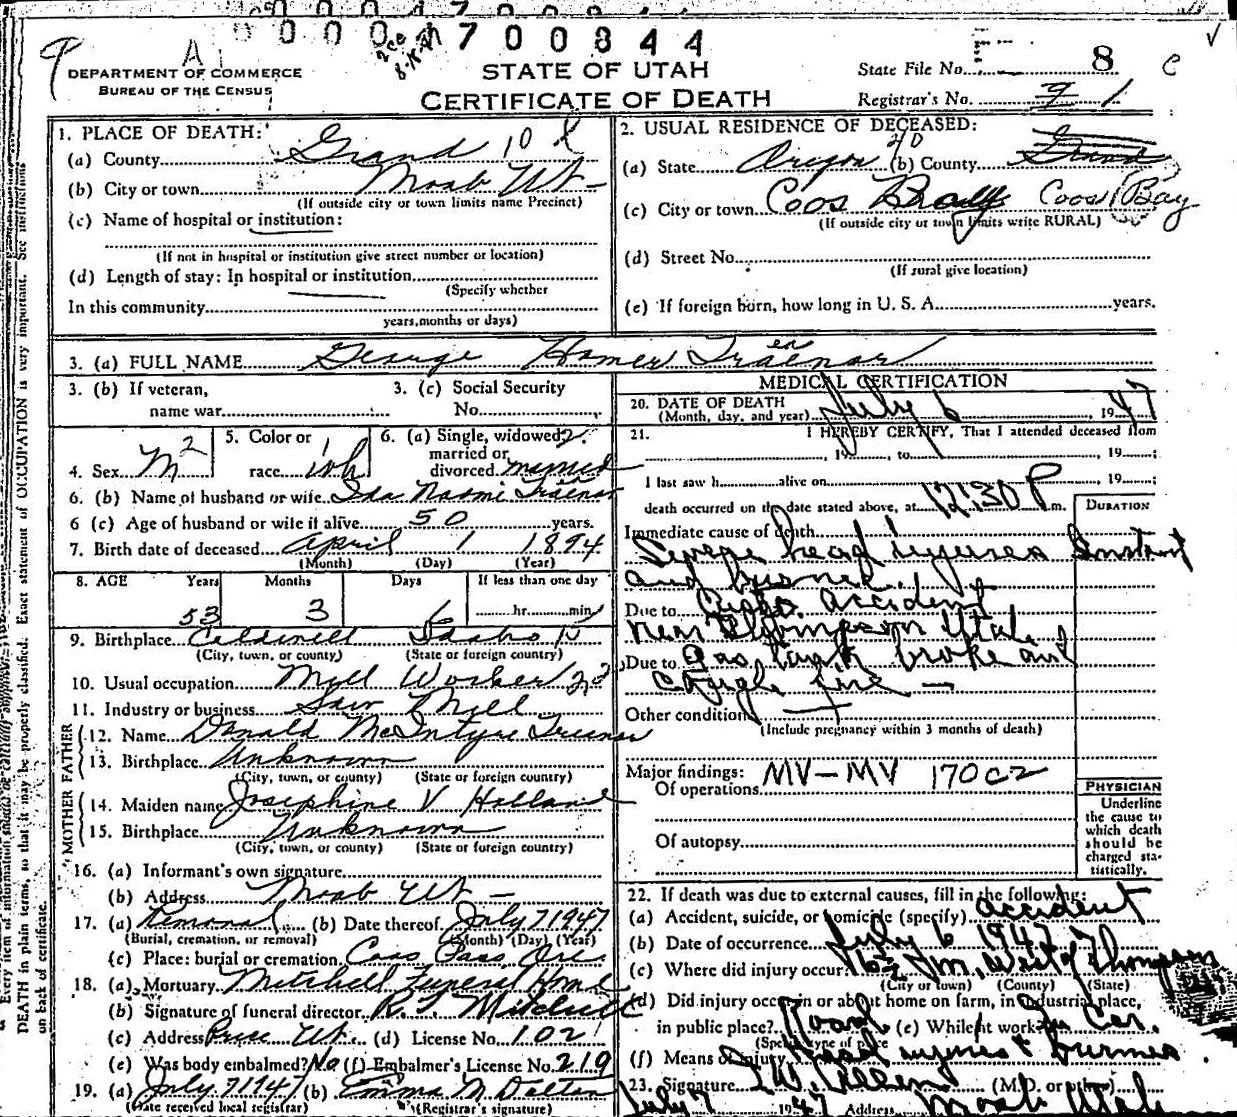 0 0 0 4 7 0 0 8 4 4
DEPARTMENT OF COMMERCE
BUREAU OF THE CENSUS
STATE OF UTAH
CERTIFICATE OF DEATH
State File No. 8
Registrar's No. 9 1
1. PLACE OF DEATH:
(a) County Grand 10
(b) City or town Moab Ut
(If outside city or town limits name Precinct)
(c) Name of hospital or institution:
(If not in hospital or institution give street number or location)
(d) Length of stay: In hospital or institution
(Specify whether
In this community
years, months or days)
2. USUAL RESIDENCE OF DECEASED:
(a) State Oregon (b) County Grand
(c) City or town Coos Coos Bay
(If outside city or town limits write RURAL)
(d) Street No.
(If rural give location)
(e) If foreign born, how long in U. S. A. years.
3. (a) FULL NAME George Homer Traenor
3. (b) If veteran,
name war
3. (c) Social Security
No.
4. Sex M 2
5. Color or
race wh
6. (a) Single, widowed,
married or
divorced married
6. (b) Name of husband or wife Ida Naomi Traenor
6 (c) Age of husband or wife if alive 50 years.
7. Birth date of deceased April 1 1894
(Month) (Day) (Year)
8. AGE Years Months Days If less than one day
53 3 6 hr. min.
9. Birthplace Caldwell Idaho
(City, town, or county) (State or foreign country)
10. Usual occupation Mill Worker
11. Industry or business Saw Mill
FATHER
12. Name Donald McIntyre Treenor
13. Birthplace Unknown
(City, town, or county) (State or foreign country)
MOTHER
14. Maiden name Josephine V Holland
15. Birthplace Unknown
(City, town, or county) (State or foreign country)
16. (a) Informant's own signature
(b) Address Moab Ut
17. (a) Removal (b) Date thereof July 7 1947
(Burial, cremation, or removal) (Month) (Day) (Year)
(c) Place: burial or cremation Coos Ore
18. (a) Mortuary Mitchell Funeral Home
(b) Signature of funeral director R. T. Mitchell
(c) Address Price Ut. (d) License No. 102
(e) Was body embalmed? No (f) Embalmer's License No. 219
19. (a) July 7 1947 (b) Emma M. Dalton
(Date received local registrar) (Registrar's signature)
MEDICAL CERTIFICATION
20. DATE OF DEATH
(Month, day, and year) July 6, 1947
21. I HEREBY CERTIFY, That I attended deceased from
, 19 , to , 19 ;
I last saw h alive on , 19 ;
death occurred on the date stated above, at 12:30 P m.
DURATION
Immediate cause of death
Severe head injuries Instant
and burned.
Due to Auto. accident
near Thompson Utah
Due to Gas tank broke and
caught fire
Other conditions
(Include pregnancy within 3 months of death)
Major findings:
Of operations MV-MV 170c2
Of autopsy
PHYSICIAN
Underline
the cause to
which death
should be
charged sta-
tistically.
22. If death was due to external causes, fill in the following:
(a) Accident, suicide, or homicide (specify) accident
(b) Date of occurrence July 6 1947
(c) Where did injury occur? West of Thompson
(City or town) (County) (State)
(d) Did injury occur in or about home on farm, in industrial place,
in public place? Road (e) While at work? In Car.
(Specify type of place
(f) Means of injury Head injuries & burnes.
23. Signature I W Allen (M.D. or other)
July 7 1947 Address Moab Utah
DEATH in plain terms, so that it may be properly classified. Exact statement of OCCUPATION is very important. See instructions
on back of certificate.